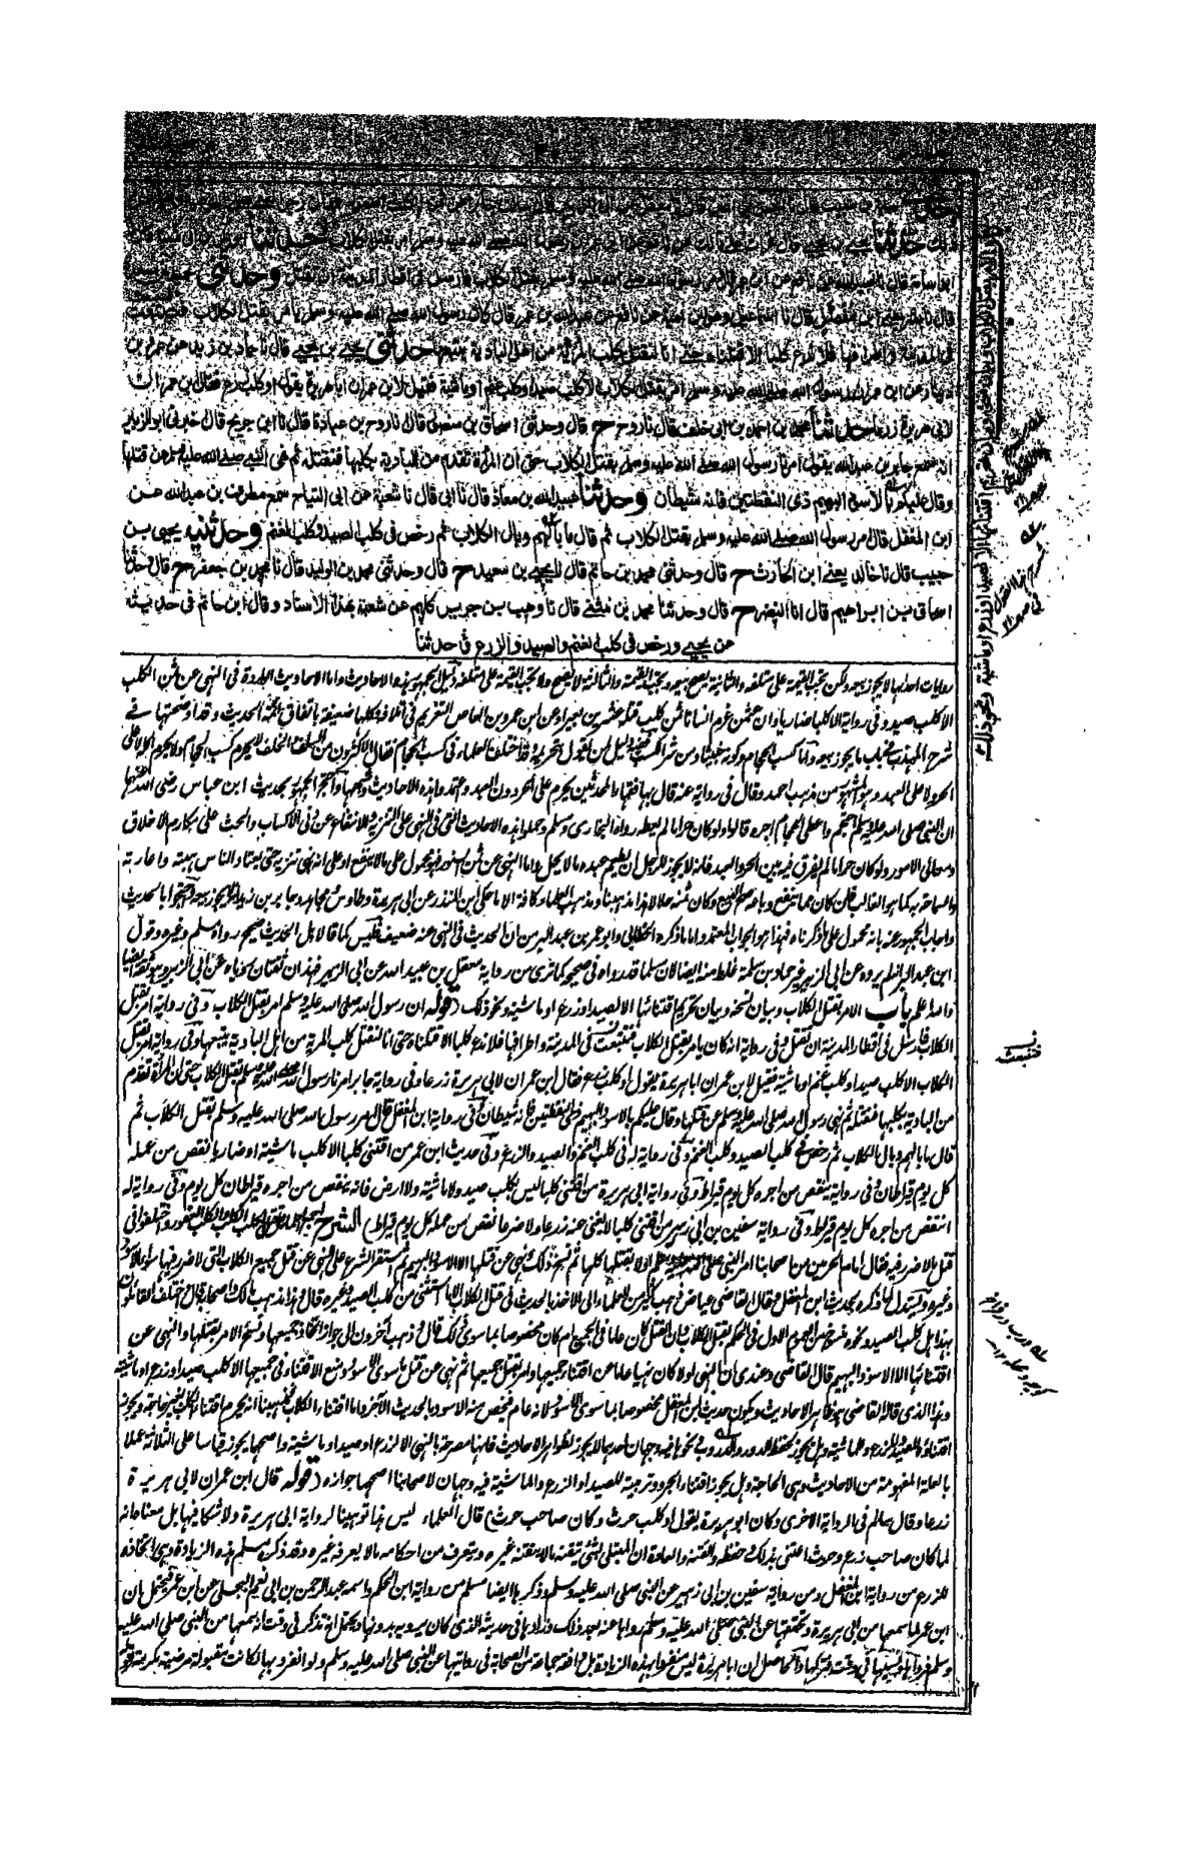 ذلك حدثنا يحيى بن يحيى قال قرأت على مالك عن نافع عن ابن عمر ان رسول الله صلى الله عليه وسلم امر بقتل الكلاب حدثنا
ابو اسامة قال نا عبيد الله عن نافع عن ابن عمر قال امر رسول الله صلى الله عليه وسلم بقتل الكلاب فارسل في اقطار المدينة ان تقتل وحدثني
قال نا بشر يعني ابن المفضل قال نا اسمعيل وهو ابن امية عن نافع عن عبد الله بن عمر قال كان رسول الله صلى الله عليه وسلم يامر بقتل الكلاب
في المدينة واطرافها فلا ندع كلبا الا قتلناه حتى انا لنقتل كلب المرية من اهل البادية يتبعها حدثني يحيى بن يحيى قال نا حماد بن زيد عن عمرو بن
دينار عن ابن عمر ان رسول الله صلى الله عليه وسلم امر بقتل الكلاب الا كلب صيد او كلب غنم او ماشية فقيل لابن عمر ان ابا هريرة يقول او كلب زرع فقال ابن عمر ان
لابي هريرة زرعا حدثنا محمد بن احمد بن ابي خلف قال نا روح ح قال وحدثني اسحاق بن منصور قال نا روح بن عبادة قال نا ابن جريج قال اخبرني ابو الزبير
انه سمع جابر بن عبد الله يقول امرنا رسول الله صلى الله عليه وسلم بقتل الكلاب حتى ان المرأة تقدم من البادية بكلبها فنقتله ثم نهى النبي صلى الله عليه وسلم عن قتلها
وقال عليكم بالاسود البهيم ذي النقطتين فانه شيطان وحدثنا عبيد الله بن معاذ قال نا ابي قال نا شعبة عن ابي التياح سمع مطرف بن عبد الله عن
ابن المغفل قال امر رسول الله صلى الله عليه وسلم بقتل الكلاب ثم قال ما بالهم وبال الكلاب ثم رخص في كلب الصيد وكلب الغنم وحدثنيه يحيى بن
حبيب قال نا خالد يعني ابن الحارث ح قال وحدثني محمد بن حاتم قال نا يحيى بن سعيد ح قال وحدثني محمد بن الوليد قال نا محمد بن جعفر ح قال وحدثنا
اسحاق بن ابراهيم قال انا النضر ح قال وحدثنا محمد بن مثنى قال نا وهب بن جرير كلهم عن شعبة بهذا الاسناد وقال ابن حاتم في حديثه
عن يحيى ورخص في كلب الغنم والصيد والزرع حدثنا
روايات احداها لا يجوز بيعه ولكن تجب القيمة على متلفه والثانية يصح بيعه وتجب القيمة والثالثة لا يصح ولا تجب القيمة على متلفه دليل الجمهور هذه الاحاديث واما الاحاديث الواردة في النهي عن ثمن الكلب
الا كلب صيد وفي رواية الا كلبا ضاريا وان عثمن غرم انسانا ثمن كلب قتله عشرين بعيرا وعن ابن عمرو بن العاص التغريم في اتلافه فكلها ضعيفة باتفاق ائمة الحديث وقد اوضحتها في
شرح المهذب في باب ما يجوز بيعه واما كسب الحجام وكونه خبيثا ومن شر الكسب ففيه دليل لمن يقول بتحريمه وقد اختلف العلماء في كسب الحجام فقال الاكثرون من السلف والخلف لا يحرم كسب الحجام ولا يحرم اكله لا على
الحر ولا على العبد وهو المشهور من مذهب احمد وقال في رواية عنه قال بها فقهاء المحدثين يحرم على الحر دون العبد واعتمدوا هذه الاحاديث وشبهها واحتج الجمهور بحديث ابن عباس رضي الله عنهما
ان النبي صلى الله عليه وسلم احتجم واعطى الحجام اجره قالوا ولو كان حراما لم يعطه رواه البخاري ومسلم وحملوا هذه الاحاديث التي في النهي على التنزيه والارتفاع عن دني الاكساب والحث على مكارم الاخلاق
ومعالي الامور ولو كان حراما لم يفرق فيه بين الحر والعبد فانه لا يجوز للرجل ان يطعم عبده ما لا يحل واما النهي عن ثمن السنور فهو محمول على ما لا ينفع او على انه نهي تنزيه حتى يعتاد الناس هبته واعارته
والسماحة به كما هو الغالب فان كان مما ينفع وباعه صح البيع وكان ثمنه حلالا هذا مذهبنا ومذهب العلماء كافة الا ما حكى ابن المنذر عن ابي هريرة وطاوس ومجاهد وجابر بن زيد انه لا يجوز بيعه واحتجوا بالحديث
واجاب الجمهور عنه بانه محمول على ما ذكرناه فهذا هو الجواب المعتمد واما ما ذكره الخطابي وابو عمر بن عبد البر من ان الحديث في النهي عنه ضعيف فليس كما قالا بل الحديث صحيح رواه مسلم وغيره وقول
ابن عبد البر انه لم يروه عن ابي الزبير غير حماد بن سلمة غلط منه ايضا لان مسلما قد رواه في صحيحه كما ترى من رواية معقل بن عبيد الله عن ابي الزبير فهذان ثقتان روياه عن ابي الزبير وهو ثقة ايضا
والله اعلم باب الامر بقتل الكلاب وبيان نسخه وبيان تحريم اقتنائها الا لصيد او زرع او ماشية ونحو ذلك (قوله ان رسول الله صلى الله عليه وسلم امر بقتل الكلاب وفي رواية امر بقتل
الكلاب فارسل في اقطار المدينة ان تقتل وفي رواية انه كان يامر بقتل الكلاب فتتبعت في المدينة واطرافها فلا ندع كلبا الا قتلناه حتى انا لنقتل كلب المرية من اهل البادية يتبعها وفي رواية امر بقتل
الكلاب الا كلب صيد او كلب غنم او ماشية فقيل لابن عمر ان ابا هريرة يقول او كلب زرع فقال ابن عمر ان لابي هريرة زرعا وفي رواية جابر امرنا رسول الله صلى الله عليه وسلم بقتل الكلاب حتى ان المرأة تقدم
من البادية بكلبها فنقتله ثم نهى رسول الله صلى الله عليه وسلم عن قتلها وقال عليكم بالاسود البهيم ذي النقطتين فانه شيطان وفي رواية ابن المغفل قال امر رسول الله صلى الله عليه وسلم بقتل الكلاب ثم
قال ما بالهم وبال الكلاب ثم رخص في كلب الصيد وكلب الغنم وفي رواية له في كلب الغنم والصيد والزرع وفي حديث ابن عمر من اقتنى كلبا الا كلب ماشية او ضاريا نقص من عمله
كل يوم قيراطان وفي رواية ينقص من اجره كل يوم قيراط وفي رواية ابي هريرة من اقتنى كلبا ليس بكلب صيد ولا ماشية ولا ارض فانه ينقص من اجره قيراطان كل يوم وفي رواية له
انتقص من اجره كل يوم قيراط وفي رواية سفين بن ابي زهير من اقتنى كلبا لا يغني عنه زرعا ولا ضرعا نقص من عمله كل يوم قيراط) الشرح
قتل ما لا ضرر فيه فقال امام الحرمين من اصحابنا امر النبي صلى الله عليه وسلم اولا بقتلها كلها ثم نسخ ذلك ونهى عن قتلها الا الاسود البهيم ثم استقر الشرع على النهي عن قتل جميع الكلاب التي لا ضرر فيها سواء الاسود
وغيره ويستدل لما ذكره بحديث ابن المغفل وقال القاضي عياض ذهب كثير من العلماء الى الاخذ بالحديث في قتل الكلاب الا ما استثنى من كلب الصيد وغيره قال وهذا مذهب مالك واصحابه قال واختلف القائلون
بهذا هل كلب الصيد ونحوه منسوخ من العموم الاول في الحكم بقتل الكلاب وان القتل كان عاما في الجميع ام كان مخصوصا بما سوى ذلك قال وذهب آخرون الى جواز اتخاذ جميعها ونسخ الامر بقتلها والنهي عن
اقتنائها الا الاسود البهيم قال القاضي وعندي ان النهي اولا كان نهيا عاما عن اقتناء جميعها وامر بقتل جميعها ثم نهى عن قتل ما سوى الاسود ومنع الاقتناء في جميعها الا كلب صيد او زرع او ماشية
وهذا الذي قاله القاضي هو ظاهر الاحاديث ويكون حديث ابن المغفل مخصوصا بما سوى الاسود لانه عام فيخص منه الاسود بالحديث الآخر واما اقتناء الكلاب فمذهبنا انه يحرم اقتناء الكلب بغير حاجة ويجوز
اقتناؤه للصيد وللزرع وللماشية وهل يجوز لحفظ الدور والدروب ونحوها فيه وجهان احدهما لا يجوز لظواهر الاحاديث فانها مصرحة بالنهي الا لزرع او صيد او ماشية واصحهما يجوز قياسا على الثلاثة عملا
بالعلة المفهومة من الاحاديث وهي الحاجة وهل يجوز اقتناء الجرو وتربيته للصيد او الزرع او الماشية فيه وجهان لاصحابنا اصحهما جوازه (قوله قال ابن عمر ان لابي هريرة
زرعا وقال سالم في الرواية الاخرى وكان ابو هريرة يقول او كلب حرث وكان صاحب حرث) قال العلماء ليس هذا توهينا لرواية ابي هريرة ولا شكا فيها بل معناه انه
لما كان صاحب زرع وحرث اعتنى بذلك وحفظه واتقنه والعادة ان المبتلى بشيء يتقنه ما لا يتقنه غيره ويتعرف من احكامه ما لا يعرفه غيره وقد ذكر مسلم هذه الزيادة وهي اتخاذه
للزرع من رواية ابن المغفل ومن رواية سفين بن ابي زهير عن النبي صلى الله عليه وسلم وذكرها ايضا مسلم من رواية ابن الحكم واسمه عبد الرحمن بن ابي نعيم البجلي عن ابن عمر فيحتمل ان
ابن عمر لما سمعها من ابي هريرة وتحققها عن النبي صلى الله عليه وسلم رواها عنه بعد ذلك وزادها في حديثه الذي كان يرويه بدونها ويحتمل انه تذكر في وقت انه سمعها من النبي صلى الله عليه
وسلم فرواها ونسيها في وقت فتركها والحاصل ان ابا هريرة ليس منفردا بهذه الزيادة بل وافقه جماعة من الصحابة في روايتها عن النبي صلى الله عليه وسلم ولو انفرد بها لكانت مقبولة مرضية مكرمة